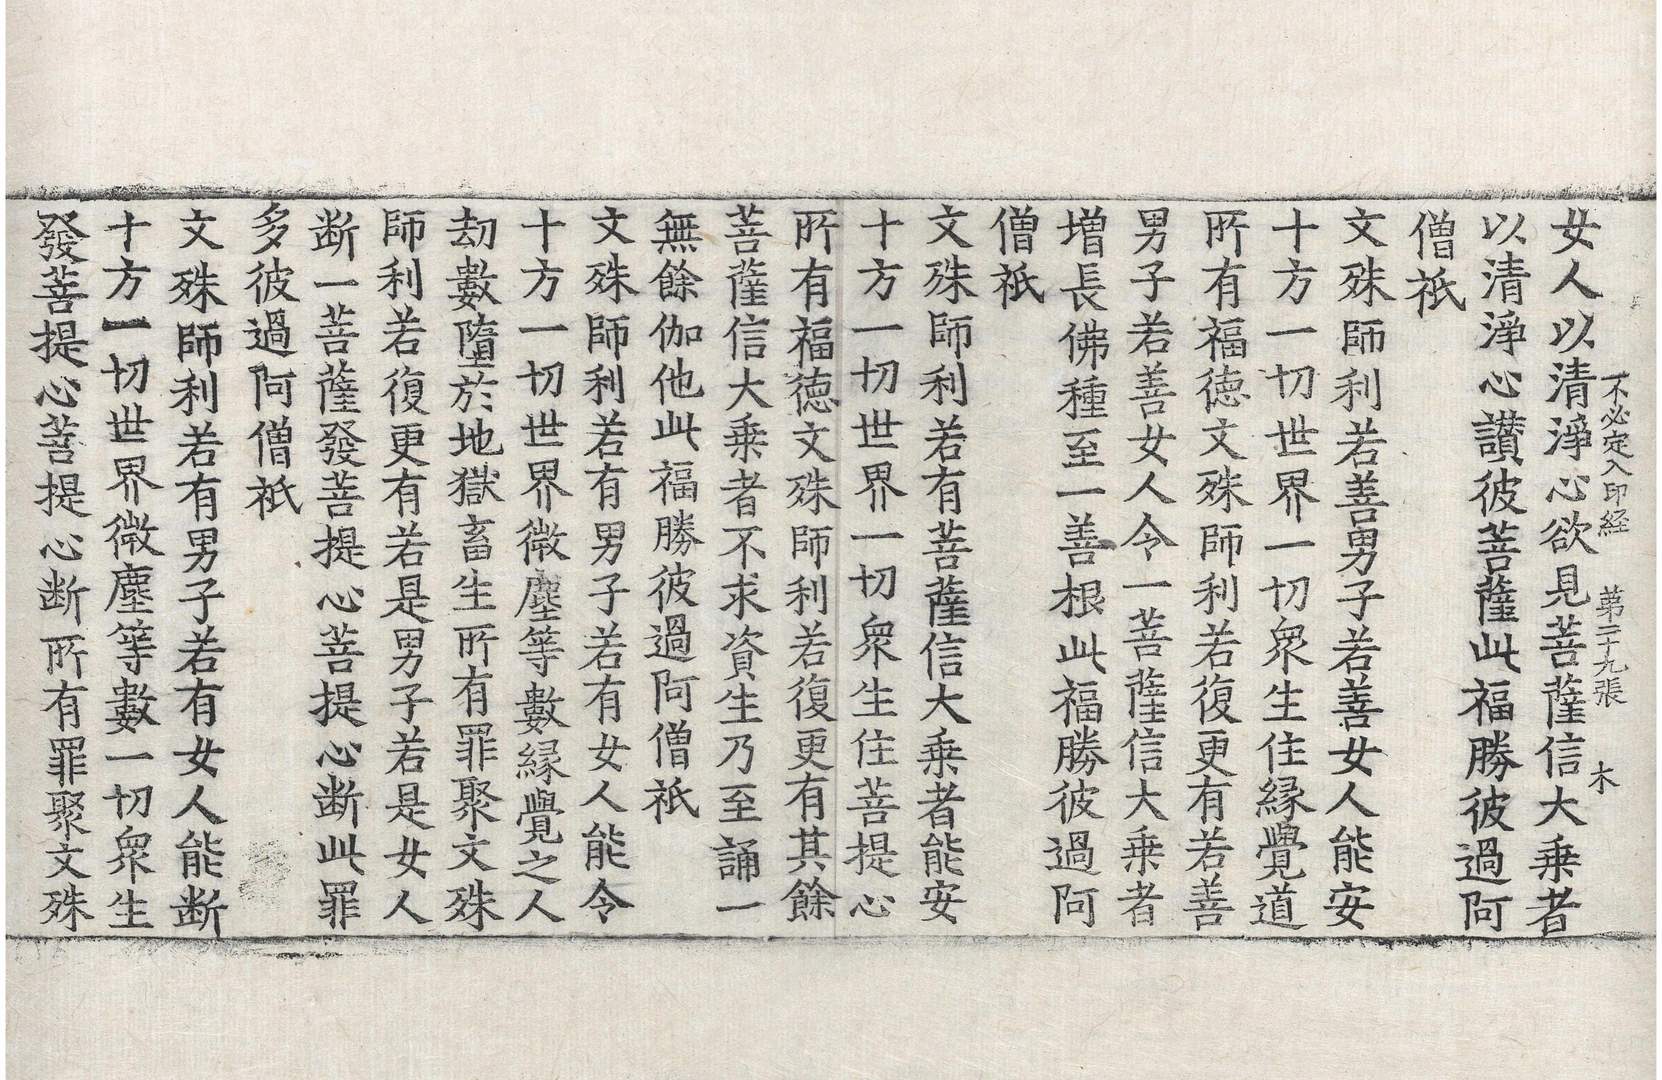 不必定入印経 第二十九張 木
女人以清淨心欲見菩薩信大乗者
以清淨心讃彼菩薩此福勝彼過阿
僧祇
文殊師利若善男子若善女人能安
十方一切世界一切衆生住縁覺道
所有福徳文殊師利若復更有若善
男子若善女人令一菩薩信大乗者
増長佛種至一善根此福勝彼過阿
僧祇
文殊師利若有菩薩信大乗者能安
十方一切世界一切衆生住菩提心
所有福徳文殊師利若復更有其餘
菩薩信大乗者不求資生乃至誦一
無餘伽他此福勝彼過阿僧祇
文殊師利若有男子若有女人能令
十方一切世界微塵等數縁覺之人
劫數墮於地獄畜生所有罪聚文殊
師利若復更有若是男子若是女人
断一菩薩發菩提心菩提心断此罪
多彼過阿僧祇
文殊師利若有男子若有女人能断
十方一切世界微塵等數一切衆生
發菩提心菩提心断所有罪聚文殊